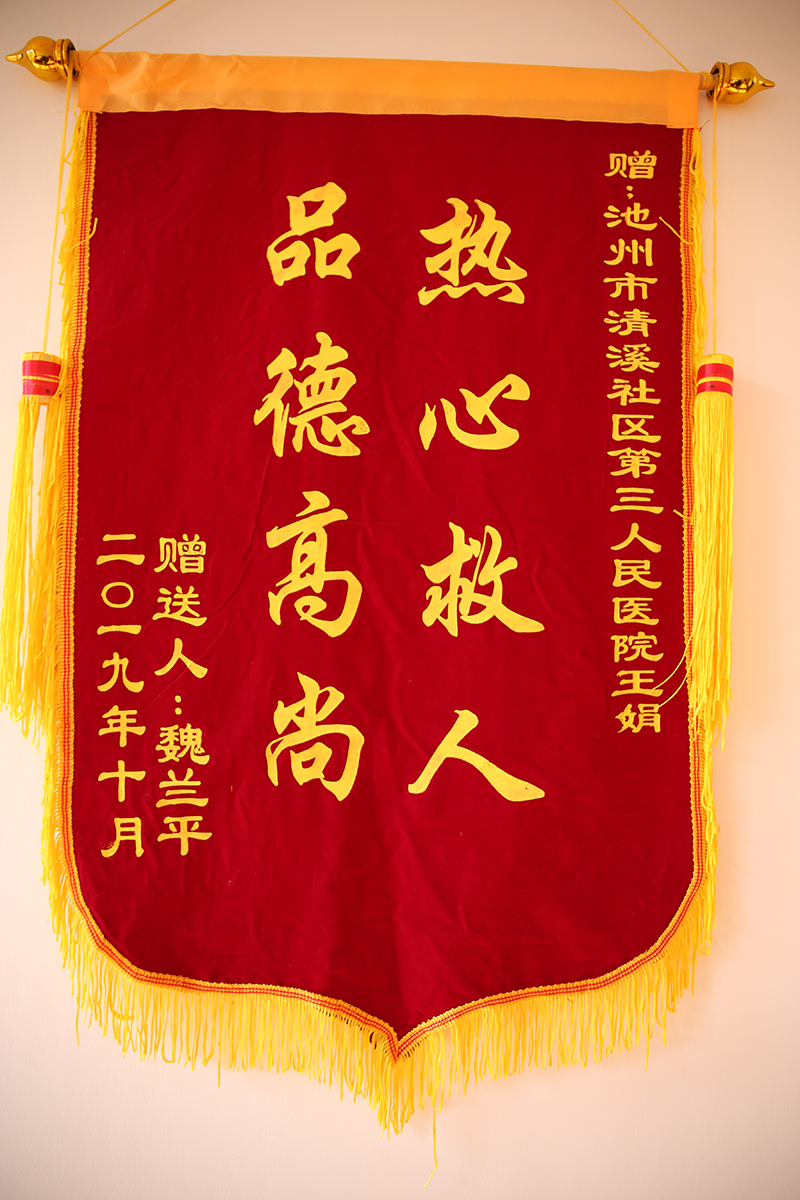 赠:池州市清溪社区第三人民医院王娟
热心救人
品德高尚
赠送人:魏兰平
二〇一九年十月